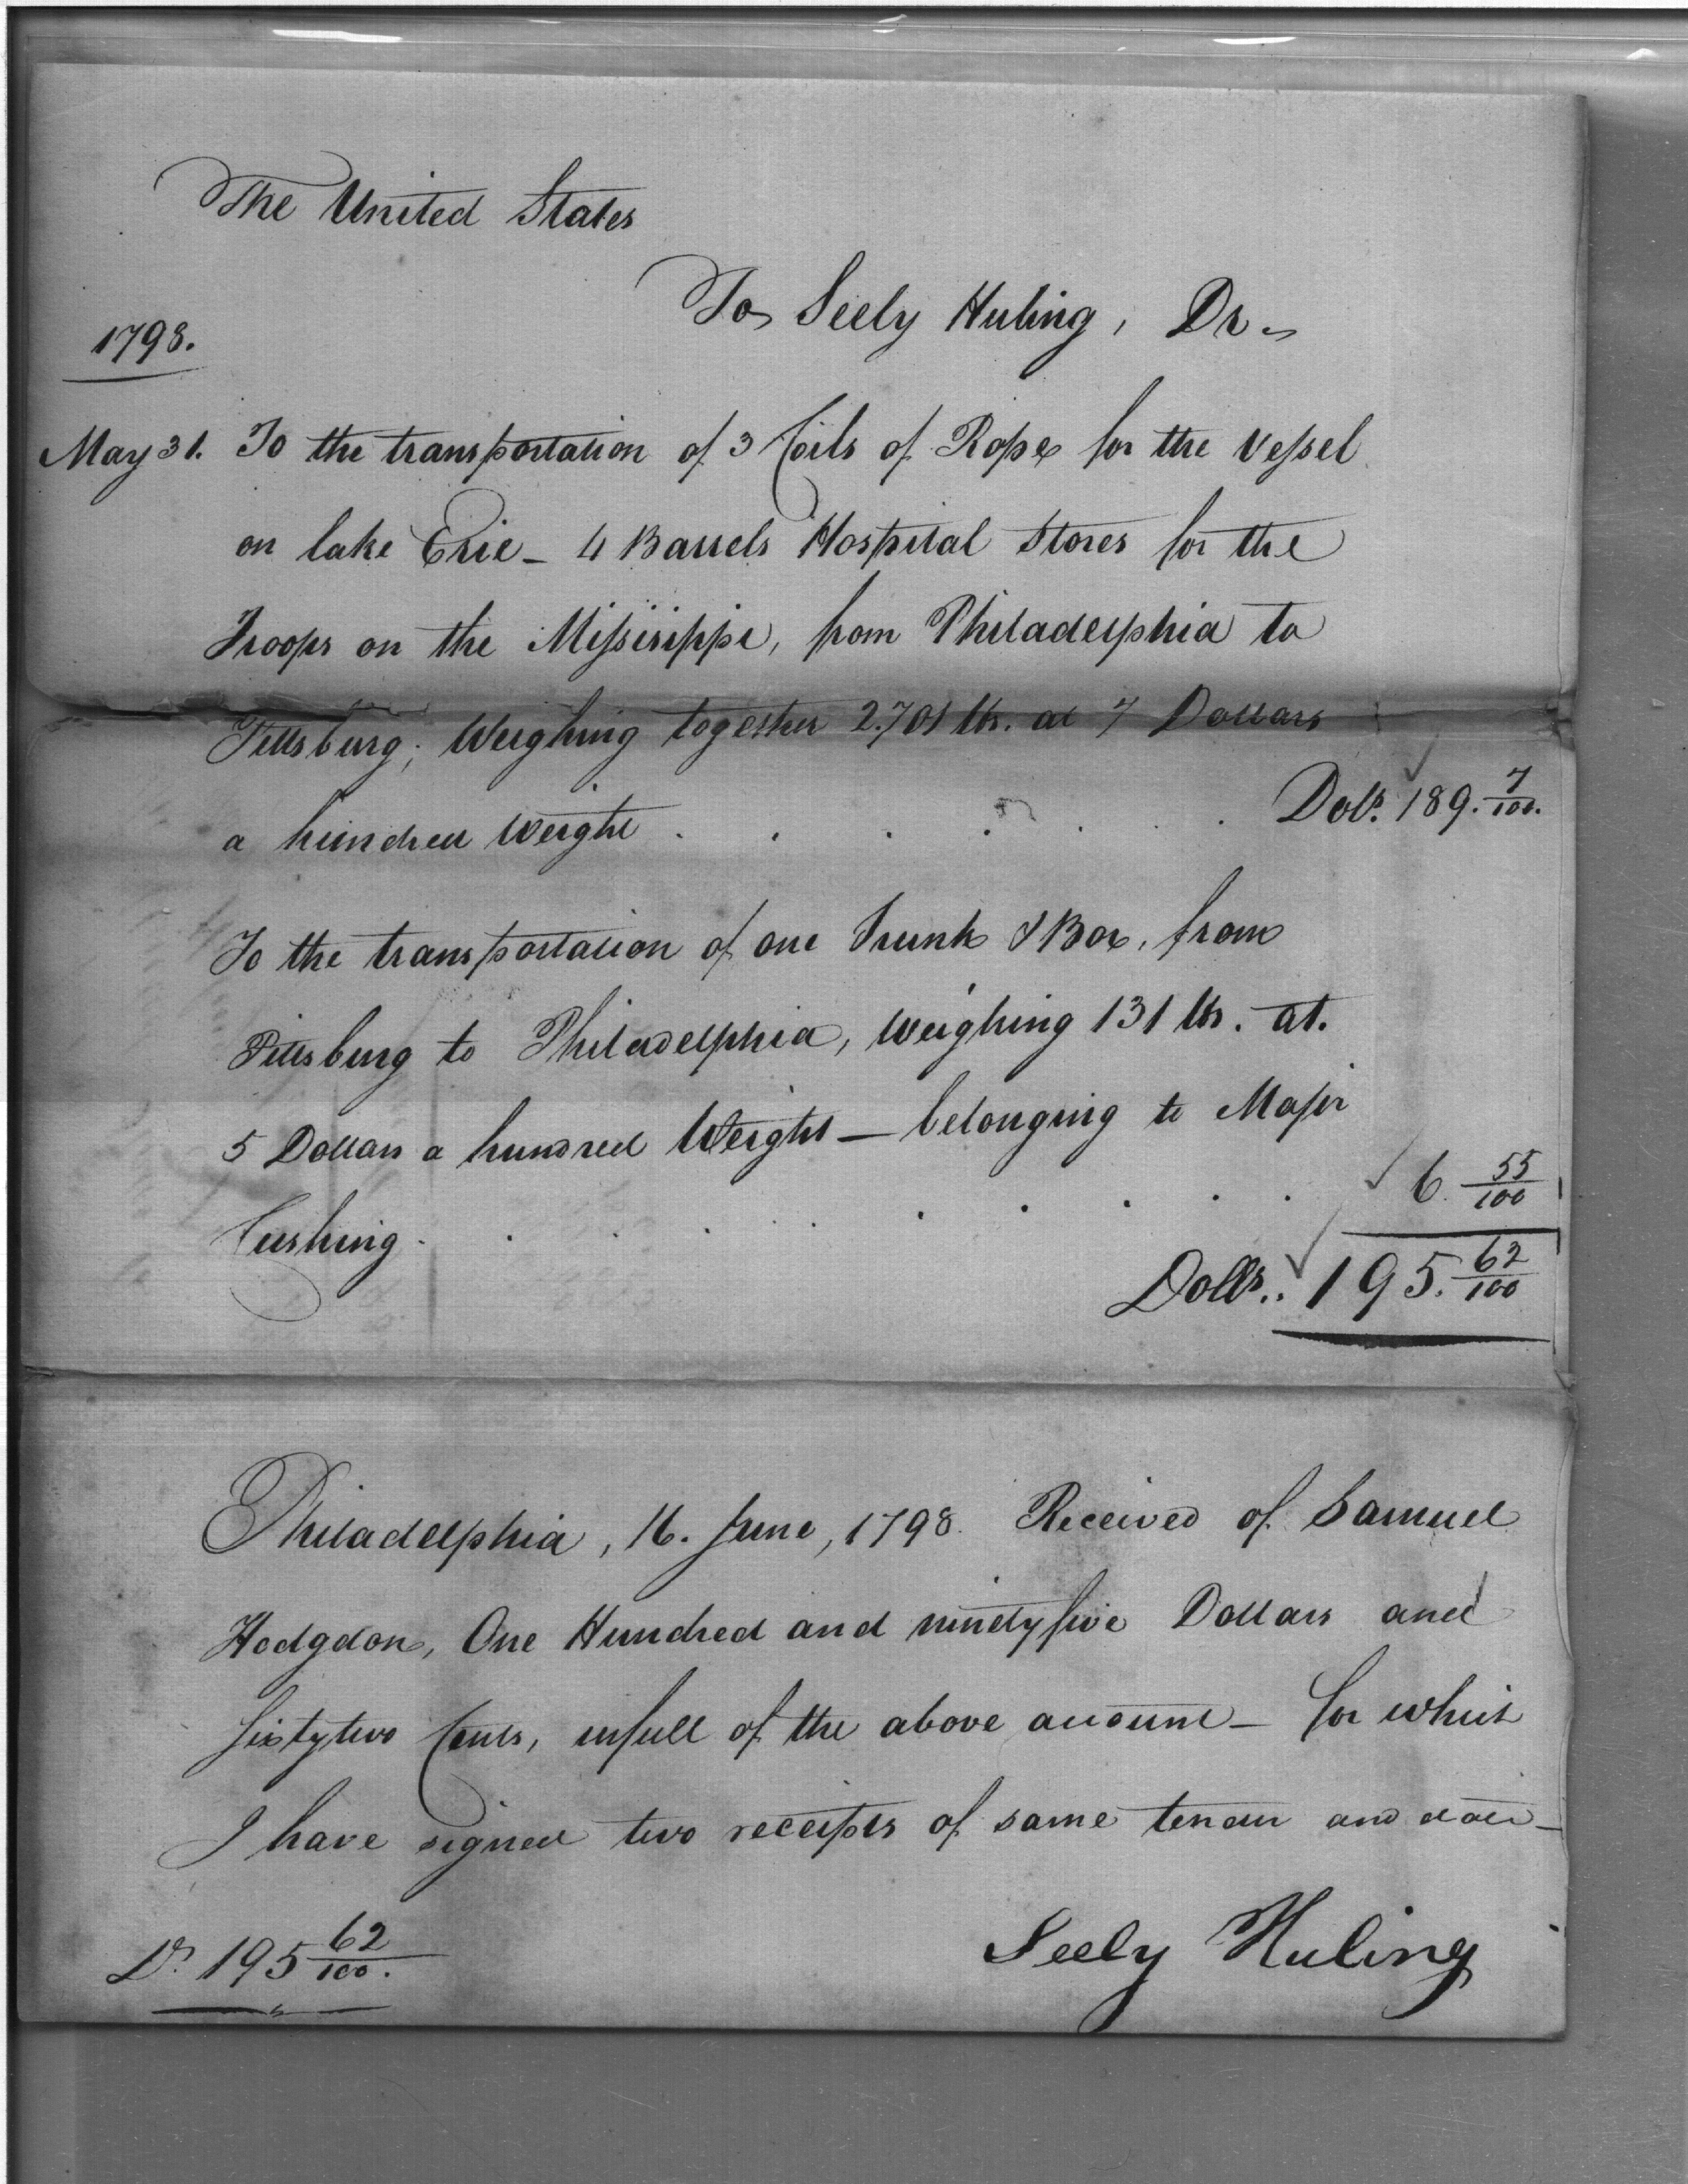 The United States
To Seely Huling, Dr.
1798.
May 31. To the transportation of 3 Coils of Rope for the Vessel
on lake Erie - 4 Barrels Hospital Stores for the
Troops on the Missisippi, from Philadelphia to
Pittsburg; Weighing together 2.701 lbs. at 7 Dollars
a hundred Weight . . . . . . Dols. 189. 7/100.
To the transportation of one Trunk & Box, from
Pittsburg to Philadelphia, weighing 131 lbs. at.
5 Dollars a hundred Weight — belonging to Major
Cushing . . . . . . . . . 6. 55/100
Dolls.. 195. 62/100
Philadelphia, 16. June, 1798. Received of Samuel
Hodgdon, One Hundred and ninety five Dollars and
sixty two Cents, in full of the above account - for which
I have signed two receipts of same tenor and date -
Ds. 195 62/100.
Seely Huling